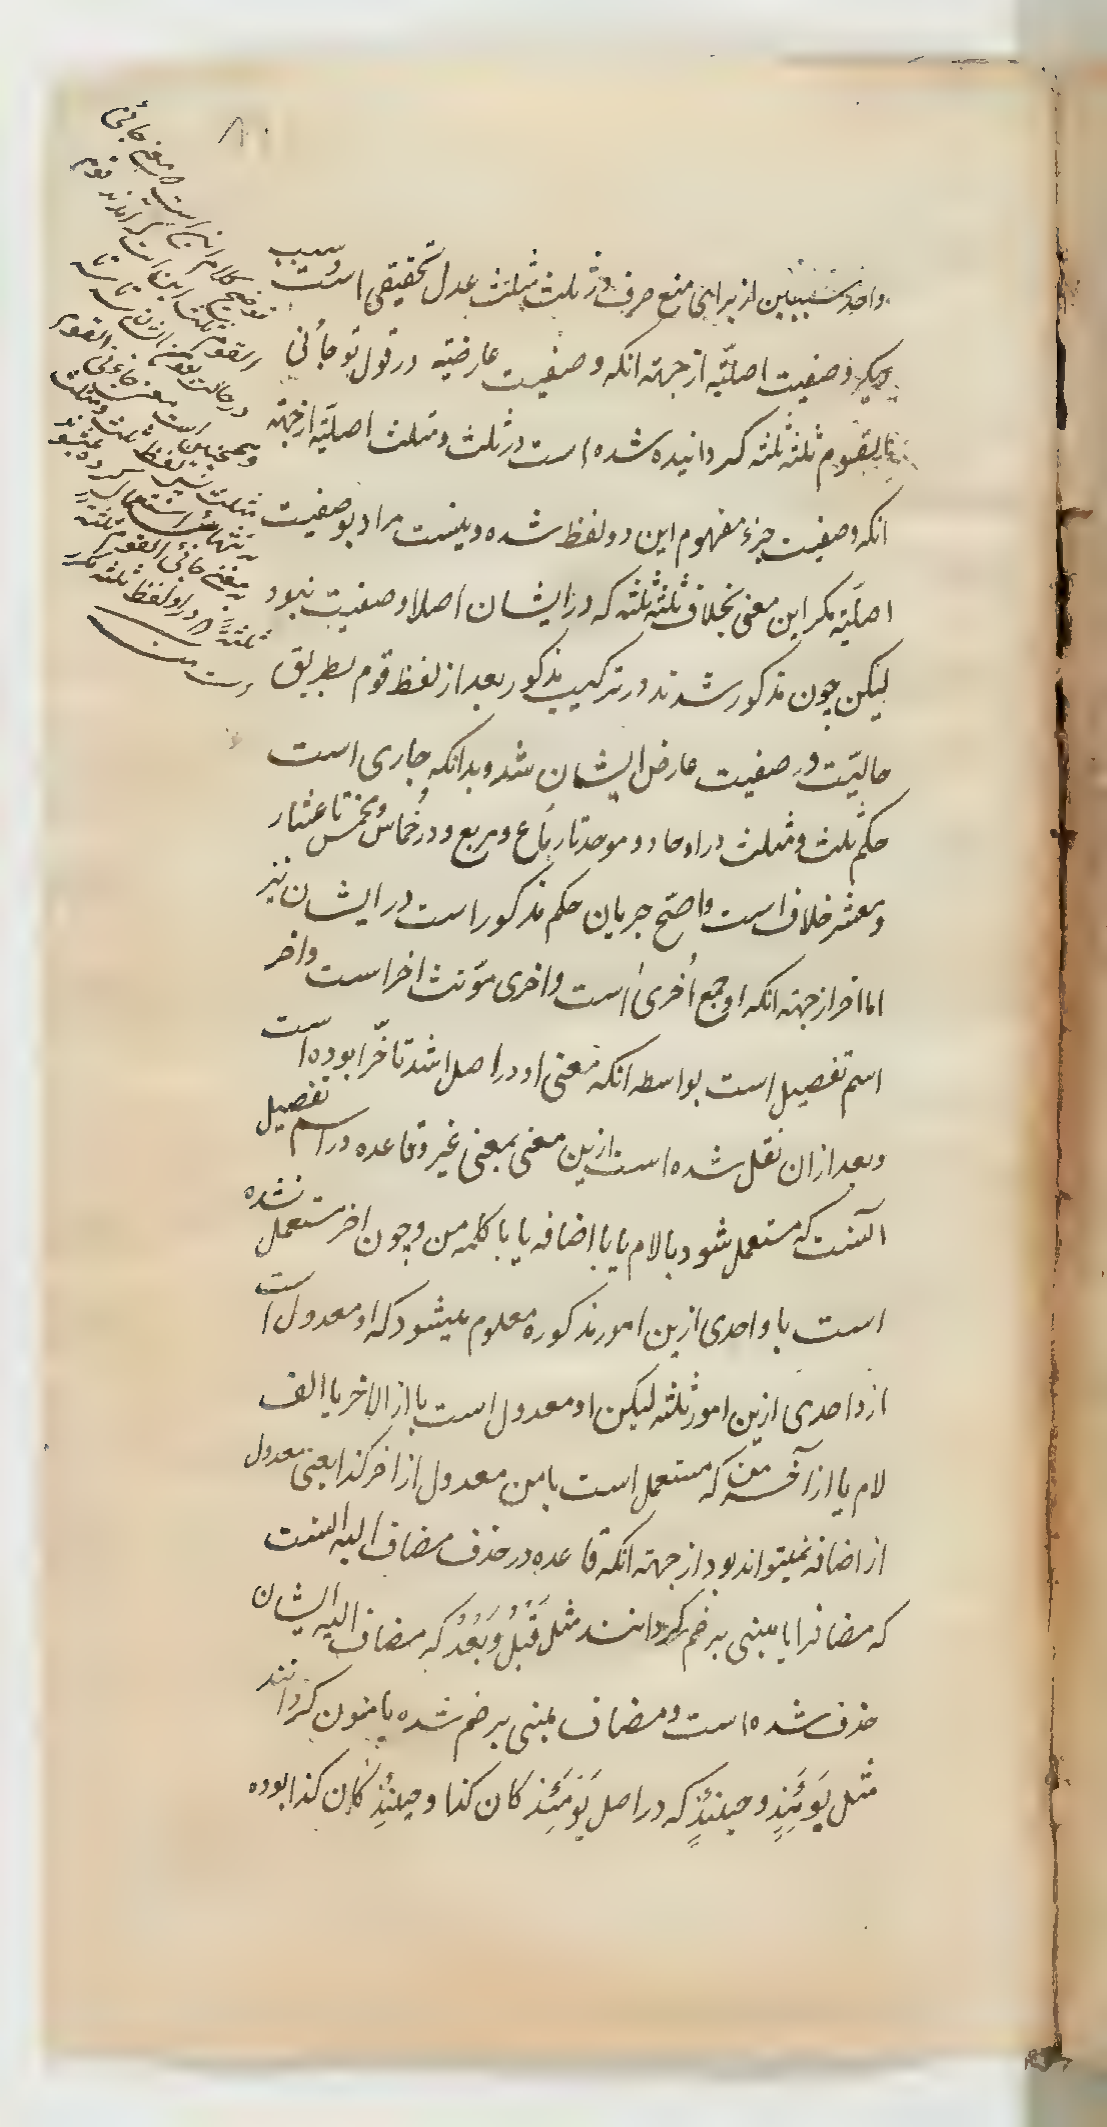 ۸
واحد سببین از برای منع صرف در ثلث و مثلث عدل تحقیقی است و سبب
دیگر وصفیت اصلیه از جهته انکه وصفیت عارضیه در قول تو جأنی
القوم ثلثة ثلثة کردانیده شده است در ثلث و مثلث اصلیّه از جهته
انکه وصفیت جزء مفهوم این دو لفظ شده و نیست مراد بوصفیت
اصلیّه مکر این معنی بخلاف ثلثة ثلثة که در ایشان اصلا وصفیت نبود
لیکن چون مذکور شدند در ترکیب مذکور بعد از لفظ قوم بطریق
حالیّت وصفیت عارض ایشان شد و بدانکه جاری است
حکم ثلث و مثلث در احاد و موحد تا رباع و مربع و در خُماس و مخمس تا عشار
و معشر خلاف است واصحّ جریان حکم مذکور است در ایشان نیز
اما اخر از جهته انکه او جمع اُخریٰ است و اخری مؤنث اخر است و اخر
اسم تفصیل است بواسطه انکه معنی او در اصل اشد تاخّرا بوده است
و بعد از ان نقل شده است ازین معنی بمعنی غیر و قاعده در اسم تفصیل
آنست که مستعمل شود بالام یا با اضافه یا با کلمه من و چون اخر مستعمل نشده
است با واحدی ازین امور مذکوره معلوم میشود که او معدول است
از واحدی ازین امور ثلثه لیکن او معدول است یا از الاخر با الف
لام یا از آخر من که مستعمل است با من معدول از اخر کذا یعنی معدول
از اضافه نمیتواند بود از جهته انکه قاعده در حذف مضاف الیه آنست
که مضاف را یا مبنی بر ضم کردانند مثل قَبْلُ وَبَعْدُ که مضاف الیه ایشان
حذف شده است و مضاف مبنی بر ضم شده یا منون کردانند
مثل یَومَئِذٍ و حینئذٍ که در اصل یَوْمَئِذ کان کذا و حینئِذِ کان کذا بوده
توضیح کلام انست که معنی جائنی
القوم ثلث اینست که امدند قوم
در حالت بودن ایشان سه تا سه تا
و همچنین است معنی جاءنی القوم
مثلث
بمعنی جائنی القوم ثلثة
ثلثة و در او لفظ ثلثه مکرر
است منه